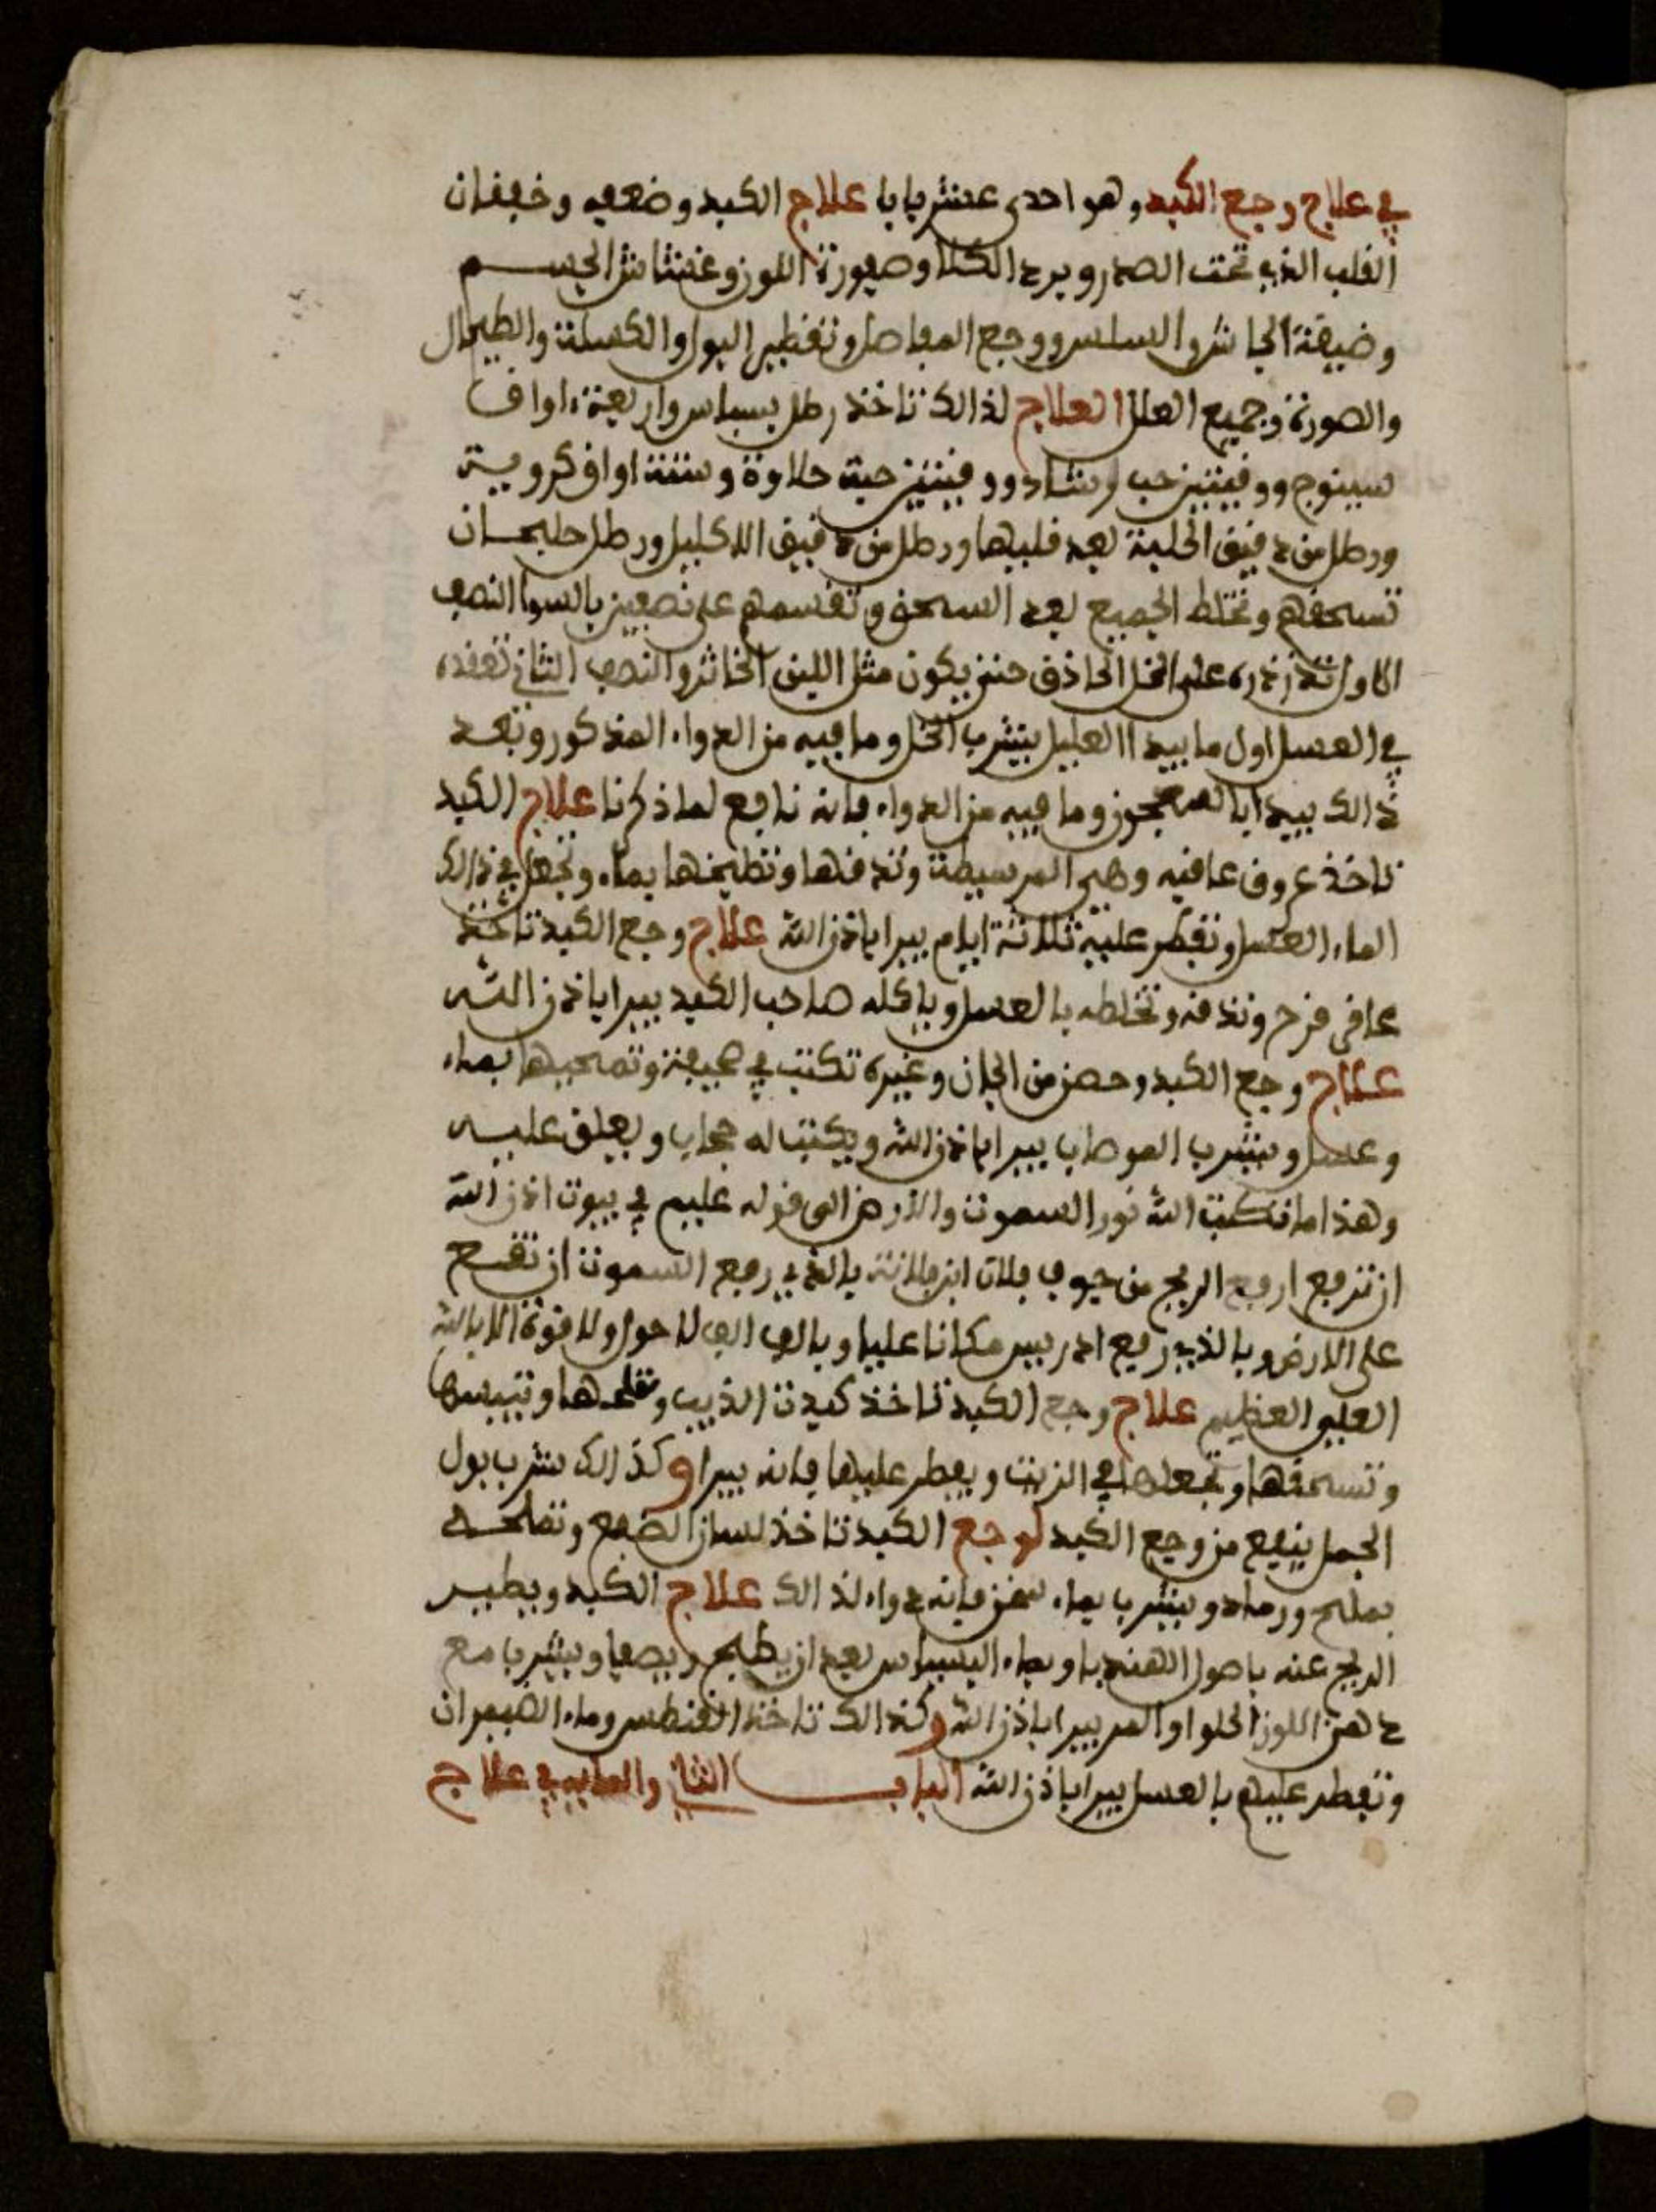 في علاج وجع الكبد وهو احدى عشر بابا علاج الكبد وضعفه وخفقان
القلب الذي تحت الصدر وبرد الكلا وصهورة اللوز وغشاش الجسم
وضيقة الجاش والسلس ووجع المفاصل وتقطير البول والكسلة والطيحال
والصورة وجميع العلل العلاج لذالك تاخذ رطل بسباس واربعة اواق
سينوج ووقيتين حب رشاد ووقيتين حبة حلاوة وستة اواق كروية
ورطل من دقيق الحلبة بعد قليها ورطل من دقيق الاكليل ورطل حليحان
تسحقهم وتخلط الجميع بعد السحق وتقسمهم على نصفين بالسوا النصف
الاول تذرذره على الخل الحاذق حتى يكون مثل اللبن الخاثر والنصف الثاني تعقده
في العسل اول ما يبدا العليل يشرب الخل وما فيه من الدواء المذكور وبعد
ذالك يبدا بالمعجون وما فيه من الدواء فانه نافع لما ذكرنا علاج الكبد
تاخذ عروق عافيه وهي المرسيطة وتدقها وتطبخها بماء وتجعل في ذالك
الماء العسل وتفطر عليه ثلاثة ايام يبرا باذن الله علاج وجع الكبد تاخذ
عاقر قرح وتدقه وتخلطه بالعسل وياكله صاحب الكبد يبرا باذن الله
علاج وجع الكبد وحصن من الجان وغيره تكتب في صحيفة وتمحيها بماء
وعسل ويشرب الموصاب يبرا باذن الله ويكتب له حجاب ويعلق عليه
وهذا ما تكتب الله نور السموت والارض الى قوله عليم في بيوت اذن الله
ان ترفع ارفع الريح من جوف فلان ابن فلانة بالذي رفع السموت ان تقع
على الارض وبالذي رفع ادريس مكانا عليا وبالف الف لا حول ولا قوة الا بالله
العلي العظيم علاج وجع الكبد تاخذ كبدت الذيب وتملحها وتيبسها
وتسحقها وتجعلها في الزيت ويفطر عليها فانه يبرا وكذالك شرب بول
الجمل ينفع من وجع الكبد لوجع الكبد تاخذ لسان الضبع وتملحه
بملح ورماد ويشرب بماء سخن فانه دواء لذالك علاج الكبد ويطير
الريح عنه باصول الهندبا وبماء البسباس بعد ان يطبخ ويصفا ويشرب مع
دهن اللوز الحلوا والمر يبرا باذن الله وكذالك تاخذ القنطس وماء الضمران
وتفطر عليهم بالعسل يبرا باذن الله الباب الثاني والعشرين في علاج